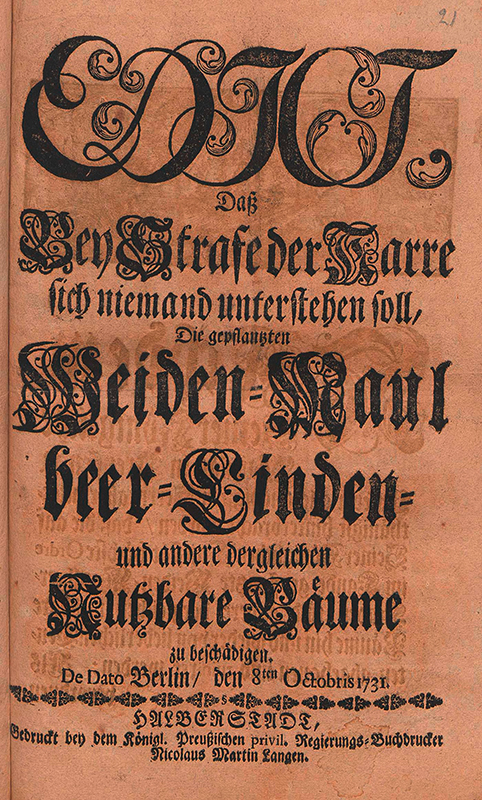 21
EDICT.
Daß
Bey Strafe der Karre
sich niemand unterstehen soll,
Die gepflantzten
Weiden-Maul
beer-Linden-
und andere dergleichen
Nutzbare Bäume
zu beschädigen.
De Dato Berlin/ den 8ten Octobris 1731.
HALBERSTADT,
Gedruckt bey dem Königl. Preußischen privil. Regierungs-Buchdrucker
Nicolaus Martin Langen.